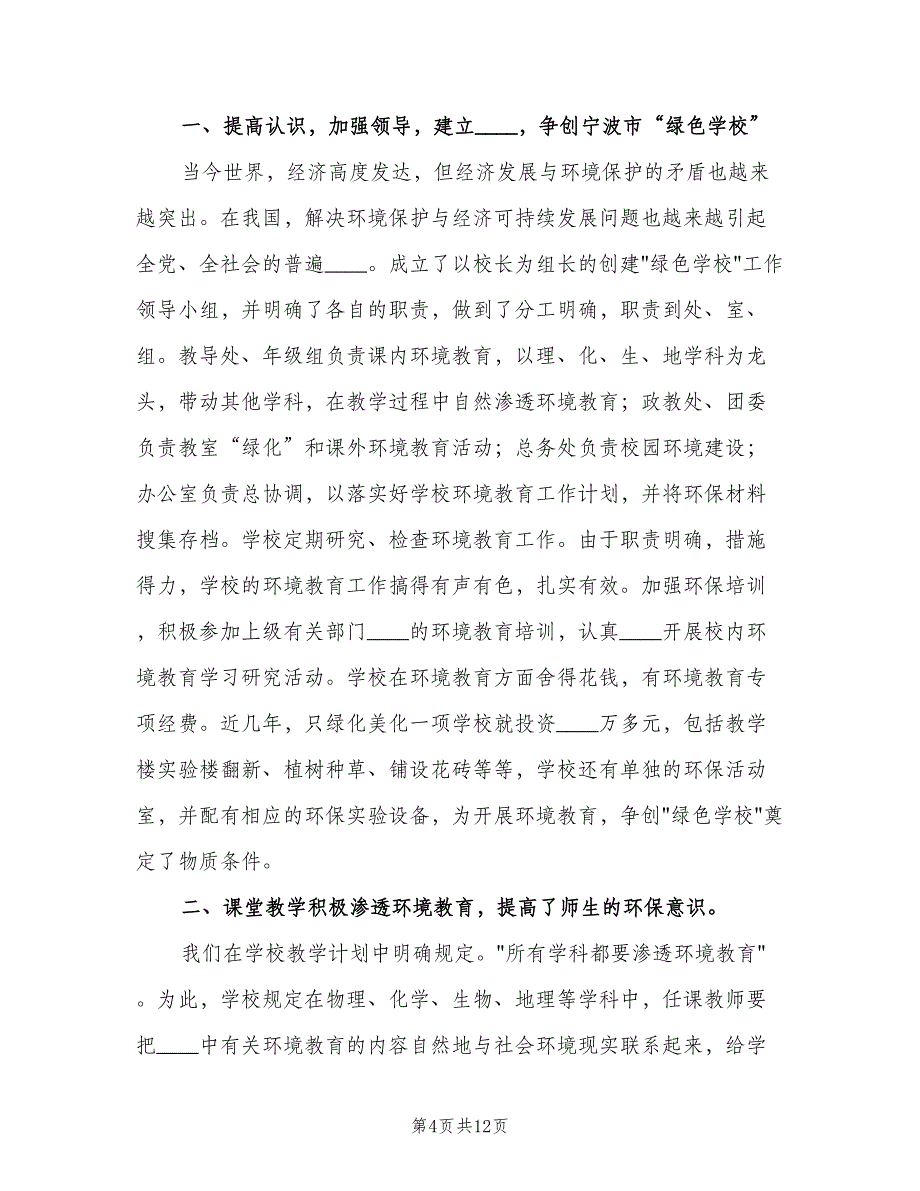 一、提高认识，加强领导，建立____，争创宁波市“绿色学校”
当今世界，经济高度发达，但经济发展与环境保护的矛盾也越来
越突出。在我国，解决环境保护与经济可持续发展问题也越来越引起
全党、全社会的普遍____。成立了以校长为组长的创建"绿色学校"工作
领导小组，并明确了各自的职责，做到了分工明确，职责到处、室、
组。教导处、年级组负责课内环境教育，以理、化、生、地学科为龙
头，带动其他学科，在教学过程中自然渗透环境教育；政教处、团委
负责教室“绿化”和课外环境教育活动；总务处负责校园环境建设；
办公室负责总协调，以落实好学校环境教育工作计划，并将环保材料
搜集存档。学校定期研究、检查环境教育工作。由于职责明确，措施
得力，学校的环境教育工作搞得有声有色，扎实有效。加强环保培训
，积极参加上级有关部门____的环境教育培训，认真____开展校内环
境教育学习研究活动。学校在环境教育方面舍得花钱，有环境教育专
项经费。近几年，只绿化美化一项学校就投资____万多元，包括教学
楼实验楼翻新、植树种草、铺设花砖等等，学校还有单独的环保活动
室，并配有相应的环保实验设备，为开展环境教育，争创"绿色学校"奠
定了物质条件。
二、课堂教学积极渗透环境教育，提高了师生的环保意识。
我们在学校教学计划中明确规定。"所有学科都要渗透环境教育"
。为此，学校规定在物理、化学、生物、地理等学科中，任课教师要
把____中有关环境教育的内容自然地与社会环境现实联系起来，给学
第4页共12页